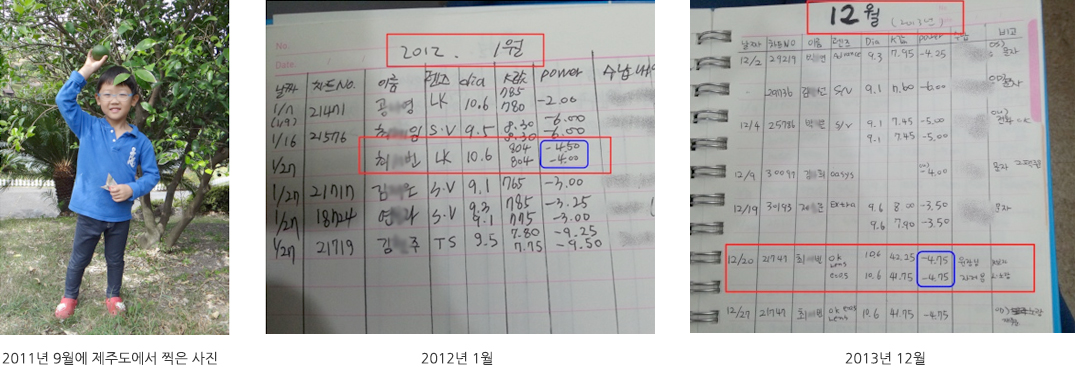 No.
Date.
2012. 1월
날짜 차트No. 이름 렌즈 dia K값 power 수납내
1/7 21471 공 영 LK 10.6 785 -2.00
(1/9) 780
8.30 -6.00
1/16 21576 임 S.V 9.5 8.30 -6.00
804 -4.50
1/27 최 빈 LK 10.6 804 -4.00
1/27 21717 김 도 S.V 9.1 765 -3.00
1/27 18724 연 S.V 9.3 785 -3.25
9.1 775 -3.00
1/27 21719 김 주 TS 9.5 7.80 -9.25
7.75 -9.50
12월 (2013년)
날짜 차트NO 이름 렌즈 Dia K값 power 수납 비고
12/2 29219 9.3 7.95 -4.25 문자
S/V 9.1 7.60 -6.00 문자
12/4 25786 S/V 9.1 7.45 -5.00
9.1 7.45 -5.00
12/9 30097 김 희 oasys -4.00 문자
12/19 30193 Extra 9.6 8.00 -3.50 문자
9.6 7.90 -3.50
12/20 21747 최 빈 ok Lens 10.6 42.25 -4.75
10.6 41.75 -4.75
12/27 21747 최 빈 ok Lens 10.6 41.75 -4.75
2011년 9월에 제주도에서 찍은 사진
2012년 1월
2013년 12월